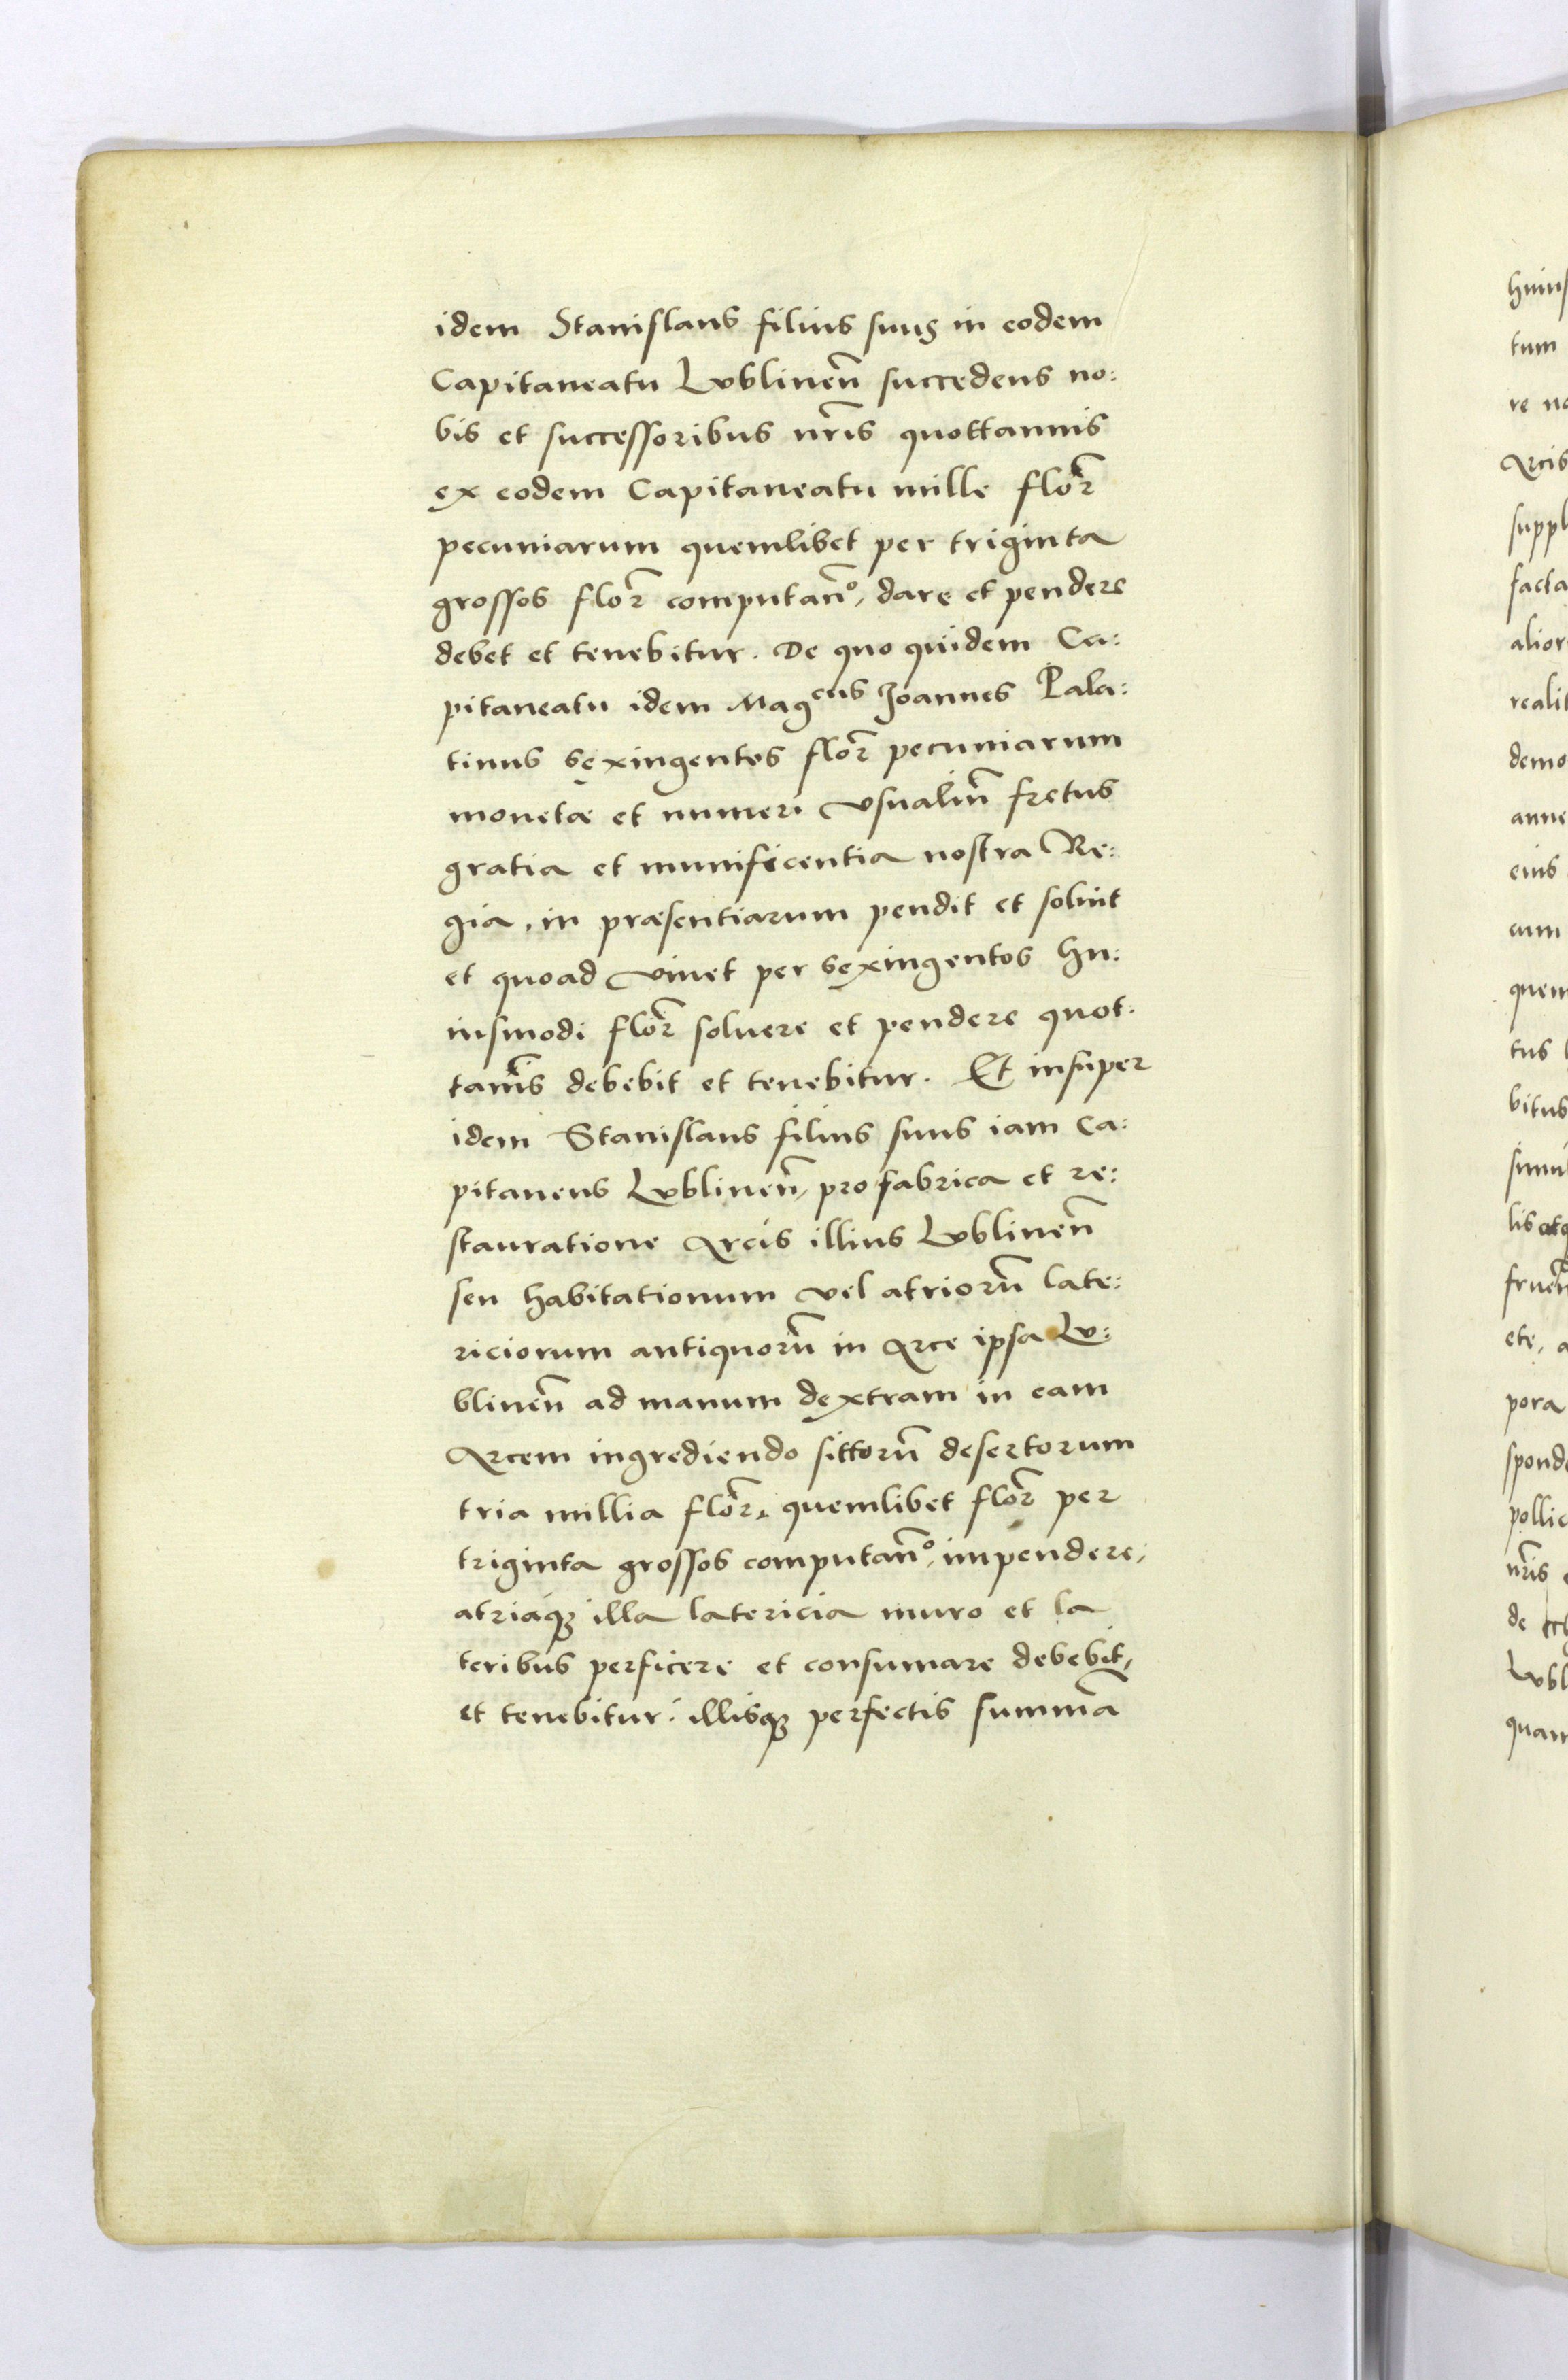 idem Stanislaus filius suus in eodem
Capitaneatu Lublineñ succedens no:
bis et successoribus nr̃is quottannis
ex eodem Capitaneatu mille flor̃
pecuniarum quemlibet per triginta
grossos flor̃ computañº, dare et pendere
debet et tenebitur. De quo quidem Ca:
pitaneatu idem Magcus Joannes Pala:
tinus sexingentos flor̃ pecuniarum
monetæ et numeri vsualiũ fretus
gratia et munificentia nostra Re:
gia, in præsentiarum pendit et soluit
et quoad viuet per sexingentos hu:
iusmodi flor̃ soluere et pendere quot:
tañis debebit et tenebitur. Et insuper
idem Stanislaus filius suus iam Ca:
pitaneus Lublineñ, pro fabrica et re:
stauratione Arcis illius Lublineñ
seu habitationum vel atriorũ late:
riciorum antiquorũ in Arce ipsa Lu:
blineñ ad manum dextram in eam
Arcem ingrediendo sittorũ desertorum
tria millia flor̃, quemlibet flor̃ per
triginta grossos computañº, impendere,
atriaq₃ illa latericia muro et la
teribus perficere et consumare debebit,
et tenebitur: illisq₃ perfectis summã
huius
tum
re no
Arcis
suppl
facta
alior
realit
demo
anne
eius
cum
quem
tus
bitus
simu
lis atq
fruen
ete, a
pora
sponde
pollic
nr̃is
de
Lubl
quam